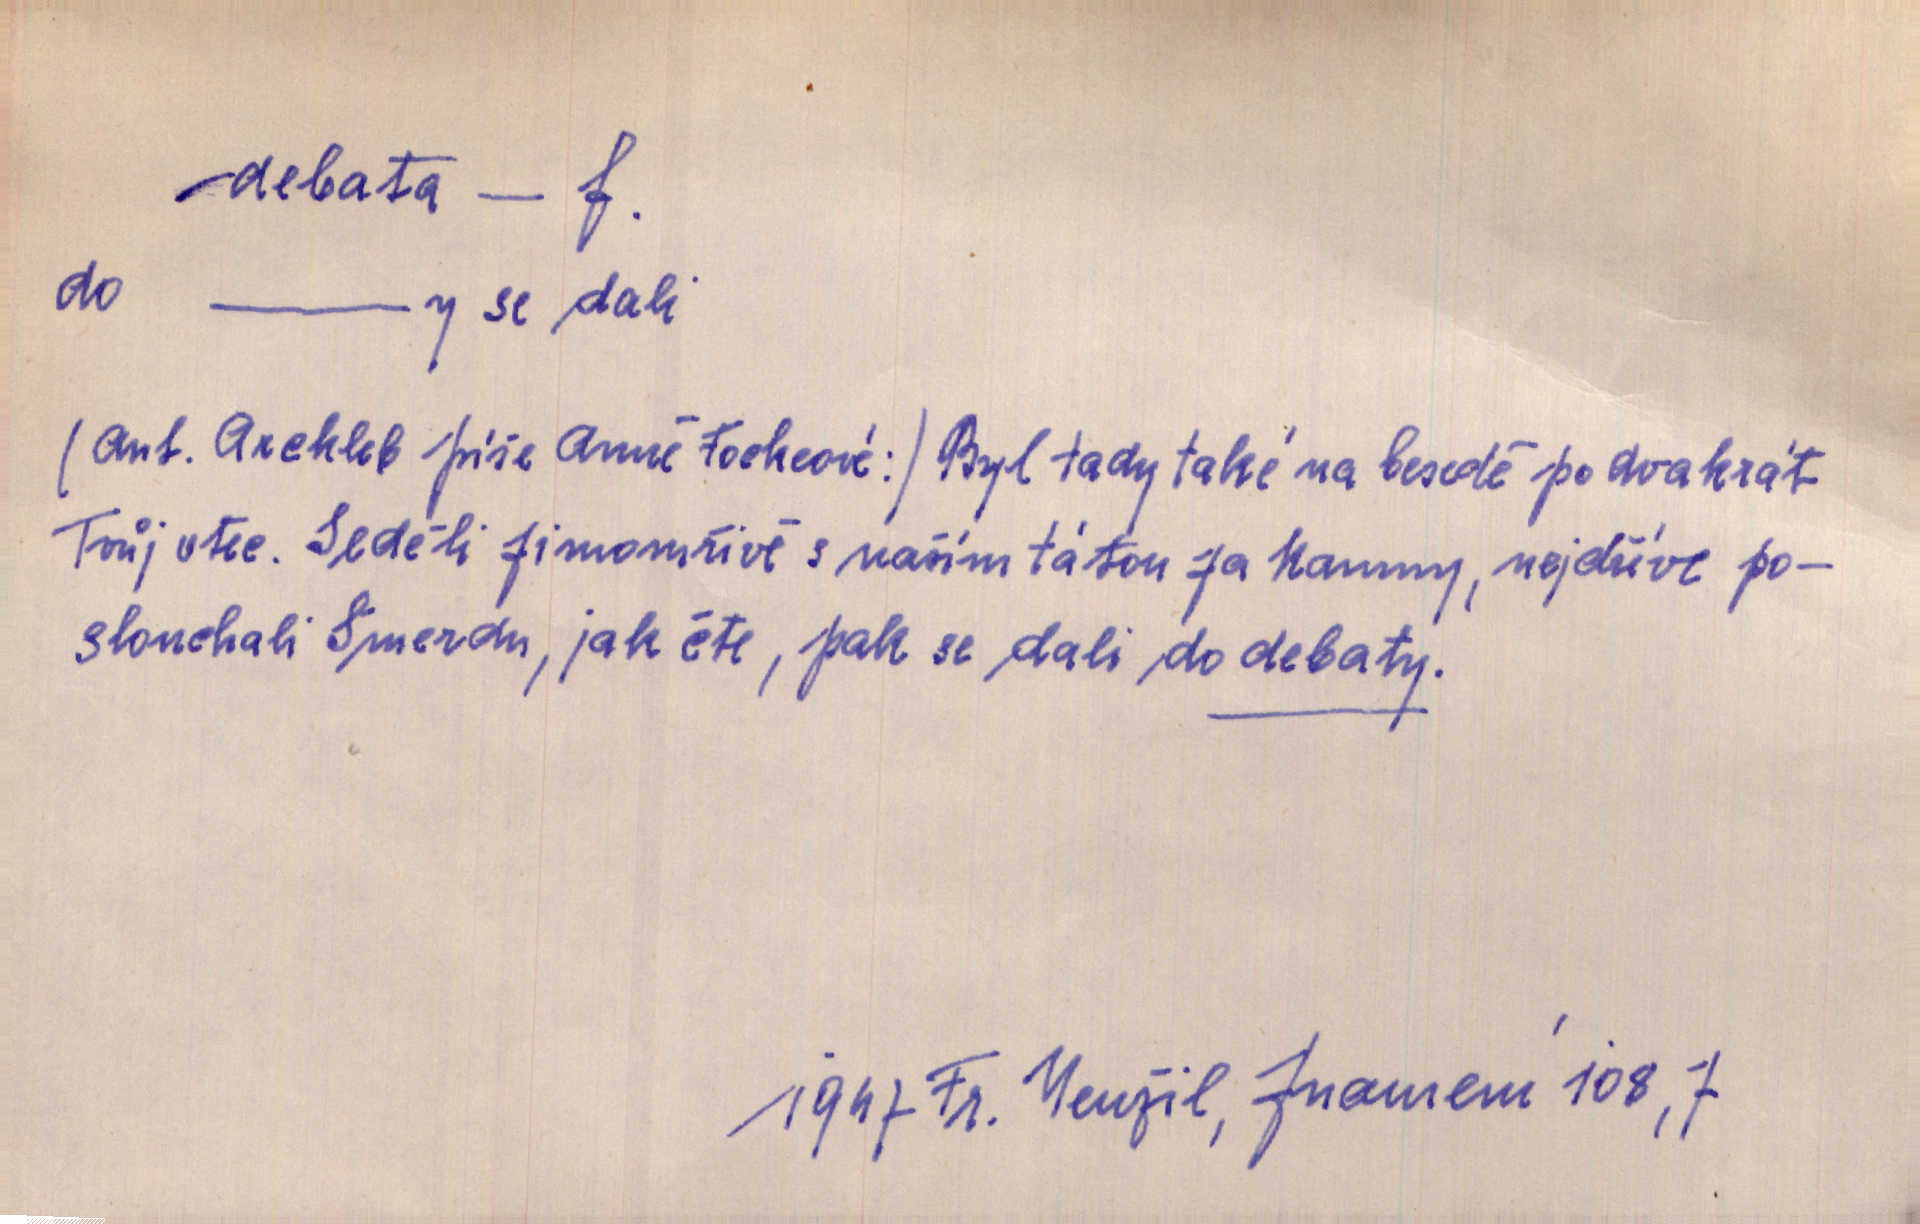 debata — f.
do ——— y se dali
(Ant. Archleb píše Anně Fockeové:) Byl tady také na besedě podvakrát
Tvůj otec. Seděli zimomřivě s naším tátou za kamny, nejdříve po-
slouchali Smerdu, jak čte, pak se dali do debaty.
1947 Fr. Neužil, Znamení 108, 7